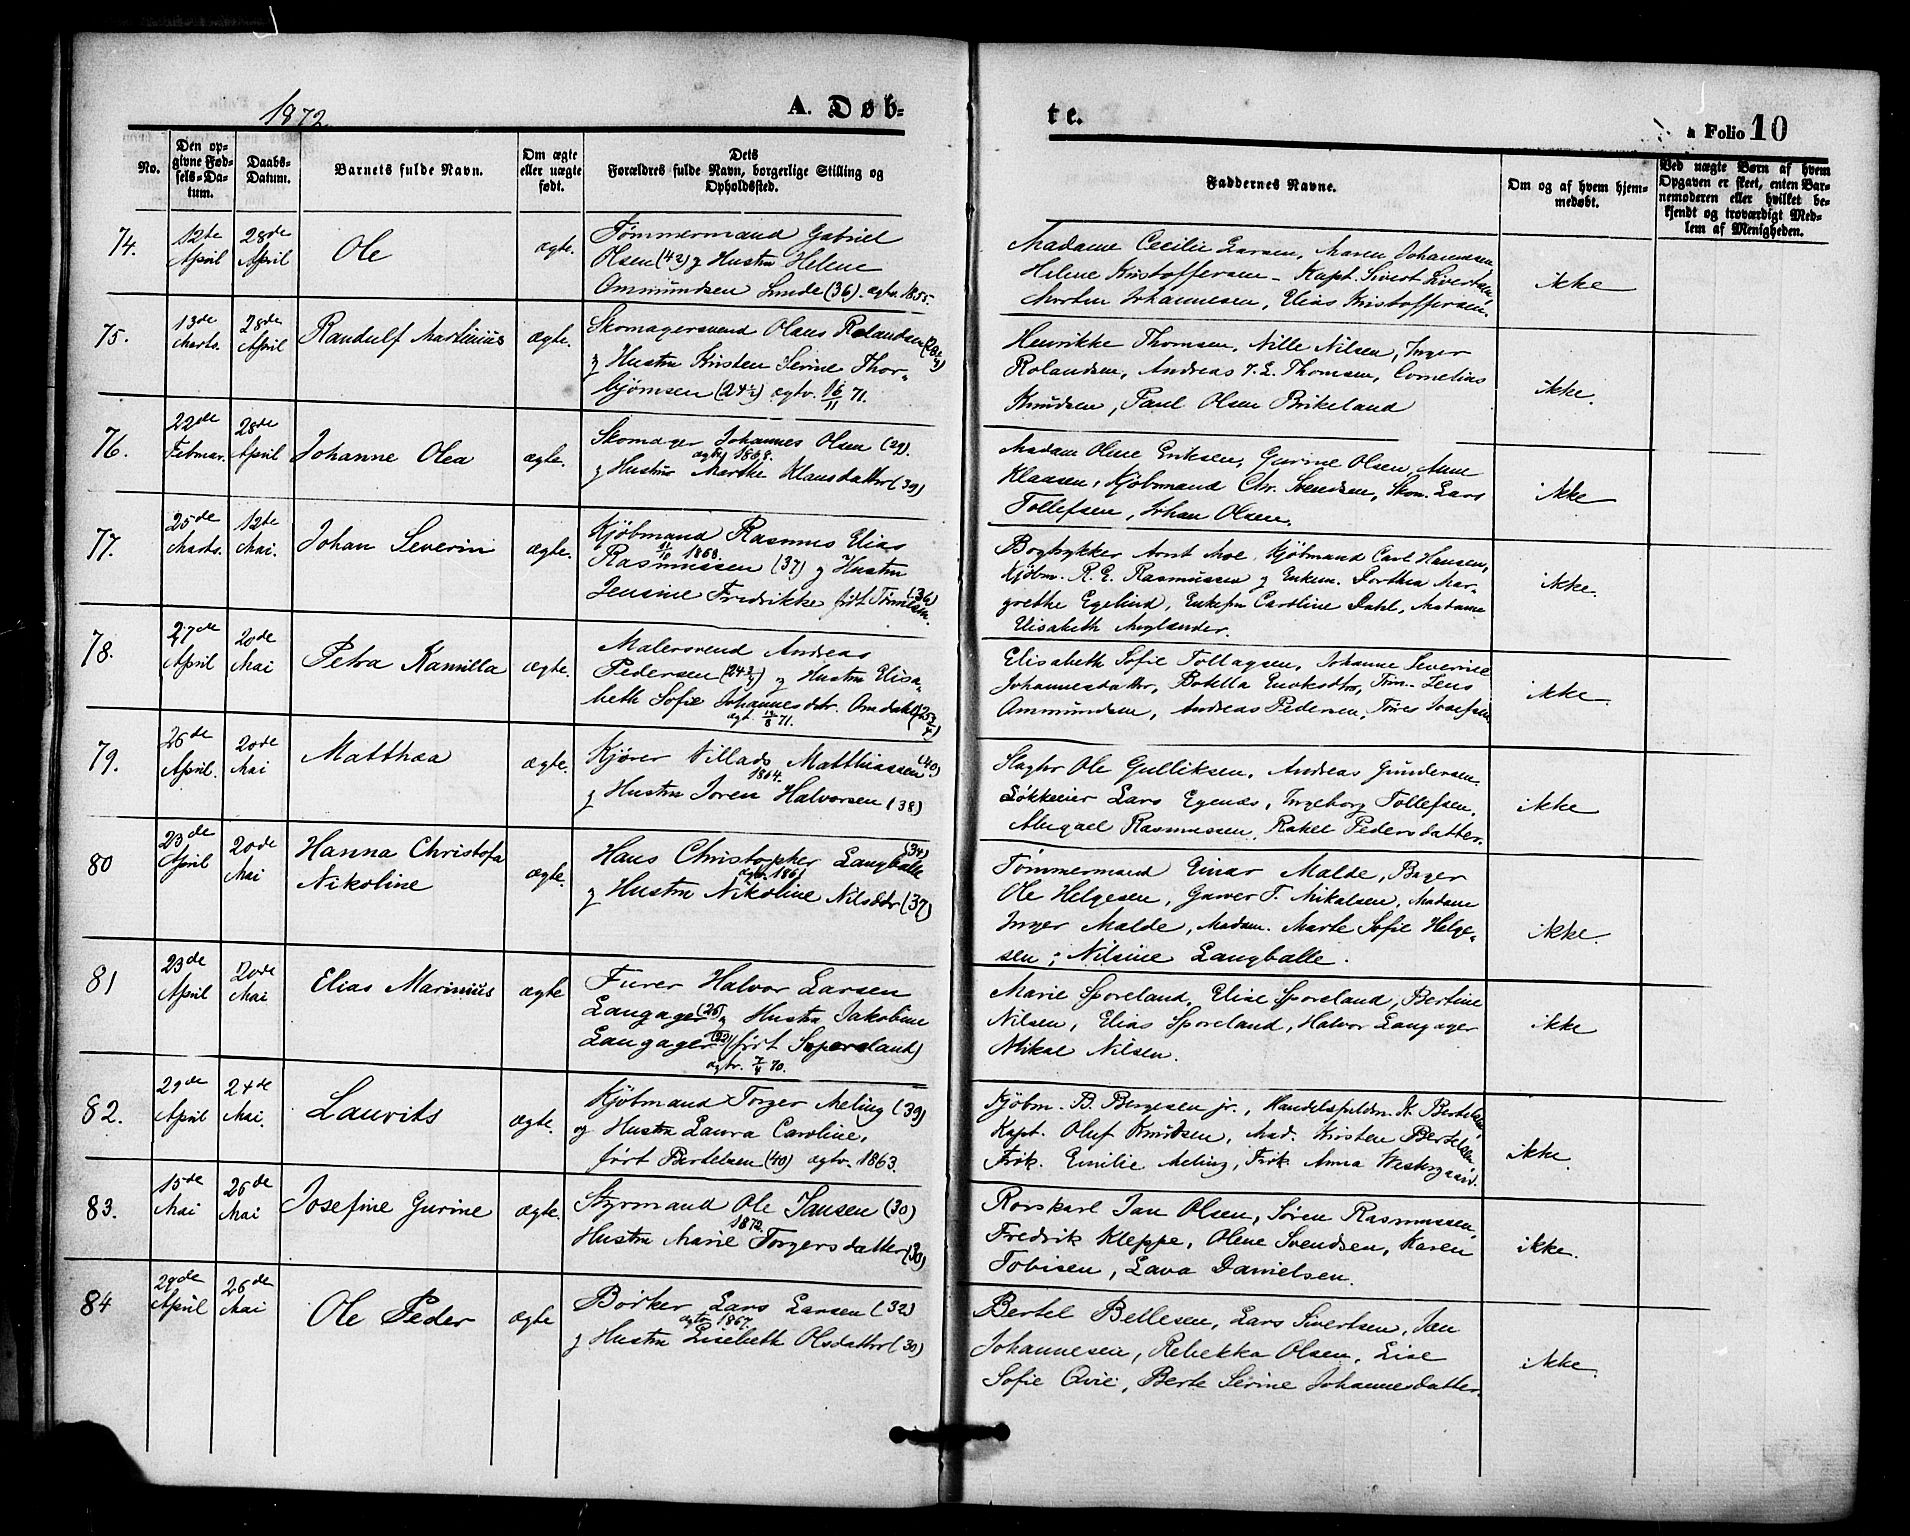 1872.
A. Døb-
te.
a Folio 10
No.
Den op-
givne Fød-
sels-Da-
tum.
Daabs-
Datum.
Barnets fulde Navn.
Om ægte
eller uægte
født.
Dets
Forældres fulde Navn, borgerlige Stilling og
Opholdssted.
Faddernes Navne.
Om og af hvem hjem-
medøbt.
Ved uægte Børn af hvem
Opgaven er skeet, enten Bar-
nemoderen eller hvilket be-
kjendt og troværdigt Med-
lem af Menigheden.
74.
12te
April
28de
April
Ole
ægte.
Tømmermand Gabriel
Olsen (42) og Hustru Helene
Ommundsen Lunde (36). ægtv. 1855.
Madame Cecilie Larsen, Maren Johannesen
Helene Kristoffersen - Kapt. Sivert Sivertsen
Morten Johannesen, Elias Kristoffersen.
ikke
75.
13de
Marts.
28de
April
Randulf Martinius
ægte.
Skomagersvend Olaus Rolandsen
og Hustru Kristen Serine Thor-
bjørnsen (24½) ægtv. 16/11 71.
Henrikke Thomsen, Nille Nilsen, Inger
Rolandsen, Andreas T. E. Thomsen, Cornelius
Knudsen, Paul Olsen Brikeland
ikke.
76.
22de
Februar.
28de
April
Johanne Olea
ægte.
Skomager Johannes Olsen (29).
ægtv. 1868.
og Hustru Marthe Klausdatter (39)
Madam Olene Eriksen, Gurine Olsen, Anne
Klaasen, Kjøbmand Chr. Svendsen, Skom. Lars
Tollefsen, Johan Olsen.
ikke
77.
25de
Marts.
12te
Mai.
Johan Severin
ægte.
Kjøbmand Rasmus Elias
11/10 1868.
Rasmussen (37) og Hustru
Jensine Fredrikke født Tønnesen. (36)
Bogtrykker Arnt Moe, Kjøbmand Carl Hansen,
Kjøbm. R. E. Rasmussen og Enkem. Dorthea Mar-
grethe Egelund, Enkefru Caroline Dahl, Madame
Elisabeth Anglander.
ikke.
78.
27de
April
20de
Mai
Petra Kamilla
ægte.
Malersvend Andreas
Pedersen (24¾) og Hustru Elisa-
beth Sofie Johannesdtr. Omdahl (25¾)
ægt. 12/8 71.
Elisabeth Sofie Tollagsen, Johanne Severine
Johannesdatter, Botella Enoksdtr, Tøm. Jens
Ommundsen, Andreas Pedersen, Tøres Josefsen
ikke.
79.
26de
April.
20de
Mai
Matthea
ægte.
Kjører Villads Matthiassen (40)
1864.
og Hustru Joren Halvorsen (38)
Slagter Ole Gulliksen, Andreas Gundersen
Løkkeeier Lars Egenes, Ingeborg Tollefsen,
Abigael Rasmussen, Rakel Pedersdatter.
ikke
80
23de
April
20de
Mai
Hanna Christofa
Nikoline
ægte.
Hans Christopher Langballe (34)
ægtv. 1861
og Hustru Nikoline Nilsdtr (37)
Tømmermand Einar Malde, Bager
Ole Helgesen, Garver T. Mikalsen, Madam
Inger Malde, Madam. Marte Sofie Helge-
sen, Nilsine Langballe.
ikke.
81
23de
April
20de
Mai
Elias Marinius
ægte
Furer Halvor Larsen
Langager (26) og Hustru Jakobine
Langager (22) (født Sporeland)
ægtv. 7/4 70.
Marie Sporeland, Elise Sporeland, Bertine
Nilsen, Elias Sporeland, Halvor Langager
Mikal Nilsen.
ikke
82.
29de
April
24de
Mai.
Laurits
ægte.
Kjøbmand Torger Meling (39)
og Hustru Laura Caroline,
født Bertelsen (40) ægtv. 1863.
Kjøbm. B. Bergesen jr., Handelsfuldm. K. Bertelsen,
Kapt. Oluf Knudsen, Mad. Kirsten Bertelsen
Frøk. Emilie Meling, Frøk. Anna Westergaard.
ikke.
83.
15de
Mai
26de
Mai
Josefine Gurine
ægte.
Styrmand Ole Jansen (30)
1872.
Hustru Marie Torgersdatter (30)
Rorskarl Jan Olsen, Søren Rasmussen,
Fredrik Kleppe, Olene Svendsen, Karen
Tobisen, Lava Danielsen.
ikke.
84
29de
April
26de
Mai
Ole Peder
ægte
Børker Lars Larsen (32)
ægtv. 1867.
og Hustru Lisebeth Olsdatter (30)
Bertel Bellesen, Lars Sivertsen, Jan
Johannesen, Rebekka Olsen, Lise
Sofie Qvie, Berte Serine Johannesdatter.
ikke.